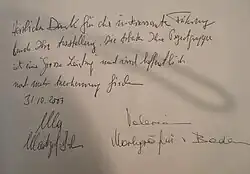 Herzlichen Dank für die interessante Führung
durch Ihre Ausstellung. Die Arbeit Ihrer Projektgruppe
ist eine große Leistung und wird hoffentlich
noch mehr Anerkennung finden
31.10.2009
Valerie
Markgräfin v. Baden